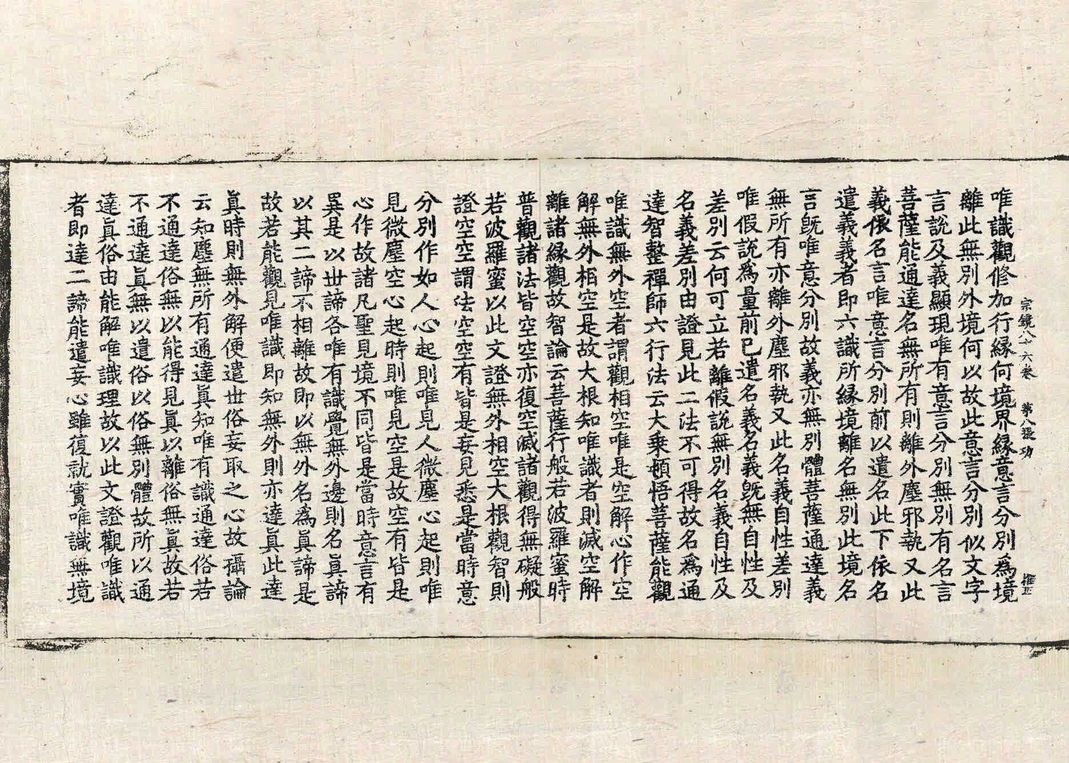 宗鏡八十六卷 第八張 功
唯識觀修加行緣何境界緣意言分別為境
離此無別外境何以故此意言分別似文字
言說及義顯現唯有意言分別無別有名言
菩薩能通達名無所有則離外塵邪執又此
義依名言唯意言分別前以遣名此下依名
遣義義者即六識所緣境離名無別此境名
言旣唯意分別故義亦無別體菩薩通達義
無所有亦離外塵邪執又此名義自性差別
唯假說為量前已遣名義名義旣無自性及
差別云何可立若離假說無別名義自性及
名義差別由證見此二法不可得故名為通
達智整禪師六行法云大乘頓悟菩薩能觀
唯識無外空者謂觀相空唯是空解心作空
解無外相空是故大根知唯識者則滅空解
離諸緣觀故智論云菩薩行般若波羅蜜時
普觀諸法皆空空亦復空滅諸觀得無礙般
若波羅蜜以此文證無外相空大根觀智則
證空空謂法空空空有皆是妄見悉是當時意
分別作如人心起則唯見人微塵心起則唯
見微塵空心起時則唯見空是故空有皆是
心作故諸凡聖見境不同皆是當時意言有
異是以世諦各唯有識覺無外邊則名眞諦
以其二諦不相離故即以無外名為眞諦是
故若能觀見唯識即知無外則亦達眞此達
眞時則無外解便遣世俗妄取之心故攝論
云知塵無所有通達眞知唯有識通達俗若
不通達俗無以能得見眞以離俗無眞故若
不通達眞無以遣俗以俗無別體故所以通
達眞俗由能解唯識理故以此文證觀唯識
者即達二諦能遣妄心雖復就實唯識無境